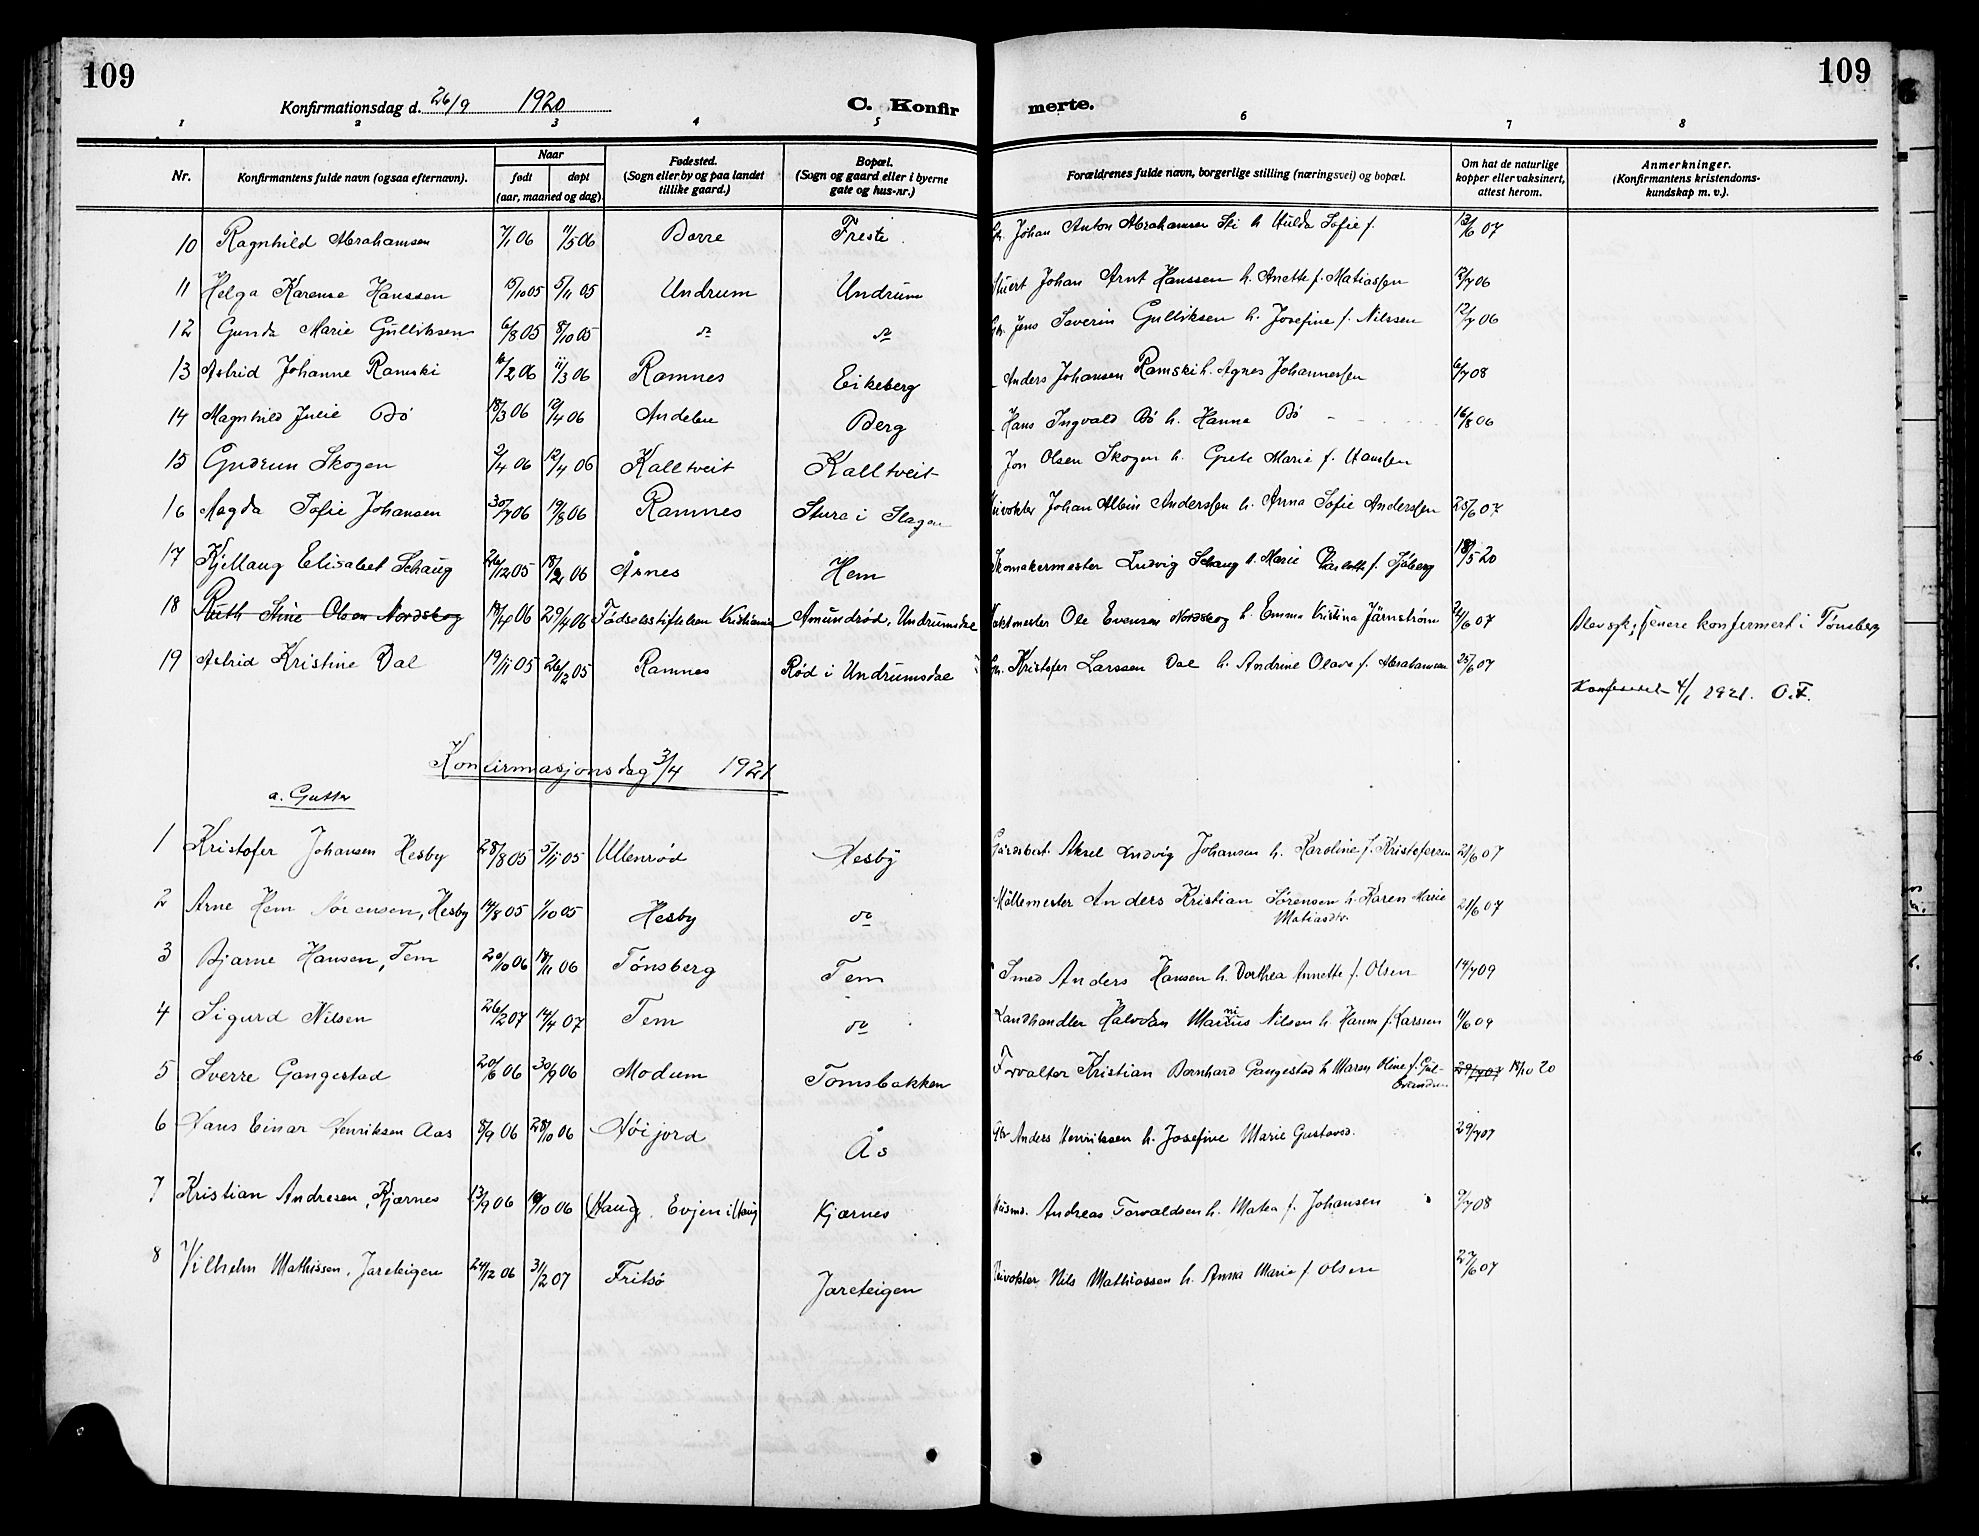 109
109
Konfirmationsdag d. 26/9 1920
C. Konfirmerte.
1 2 3 4 5 6 7 8
Nr.
Konfirmantens fulde navn (ogsaa efternavn).
Naar
født døpt
(aar, maaned og dag)
Fødested.
(Sogn eller by og paa landet
tillike gaard.)
Bopæl.
(Sogn og gaard eller i byerne
gate og hus-nr.)
Forældrenes fulde navn, borgerlige stilling (næringsvei) og bopæl.
Om hat de naturlige
kopper eller vaksinert,
attest herom.
Anmerkninger.
(Konfirmantens kristendoms-
kundskap m. v.).
10 Ragnhild Abrahamsen 7/1 06 4/5 06 Borre Freste Gbr. Johan Anton Abrahamsen Ski h. Hulda Sofie f. 13/6 07
11 Helga Karense Hanssen 15/10 05 5/11 05 Undrum Undrum Johan Arnt Hanssen h. Anette f. Matiassen 12/7 06
12 Gunda Marie Gulliksen 6/8 05 8/10 05 do do Gbr. Jens Severin Gulliksen h. Josefine f. Nilssen 12/7 06
13 Astrid Johanne Ramski 16/2 06 11/3 06 Ramnes Eikeberg - Anders Johansen Ramski h. Agnes Johannessen 6/7 08
14 Magnhild Julie Bø 18/3 06 12/4 06 Andebu Berg - Hans Ingvald Bø h. Hanna Bø - 16/8 06
15 Gudrun Skogen 2/4 06 12/4 06 Kalltveit Kalltveit - Jon Olsen Skogen h. Grete Marie f. Hanssen
16 Magda Sofie Johansen 30/7 06 19/8 06 Ramnes Sture i Slagen Johan Albin Anderssen h. Anna Sofie Anderssen 25/6 07
17 Kjellaug Elisabet Schaug 26/12 05 18/2 06 Årnes Hem Skomakermester Ludvig Schaug h. Marie Charlotte f. Sjöberg 18/5 20
18 Ruth Stine Olsen Nordskog 18/4 06 29/4 06 Fødselsstiftelsen Kristiania Amundrød, Undrumsdal Ole Evensen Nordskog h. Emma Kristina Järnstrøm 24/6 07 Blev syk, senere konfermert i Tønsberg
19 Astrid Kristine Dal 19/11 05 26/12 05 Ramnes Rød i Undrumsdal Gbr. Kristofer Larssen Dal h. Andrine Olava f. Abrahamsen 25/6 07
Konfereret 4/1 1921. O.F.
Konfirmasjonsdag 3/4 1921
a. Gutter
1 Kristofer Johansen Hesby 28/8 05 5/11 05 Ullenrød Hesby Gårdsbest. Aksel Ludvig Johansen h. Karoline f. Kristofersen 21/6 07
2 Arne Hem Sørensen, Hesby 14/8 05 1/10 05 Hesby do Möllemester Anders Kristian Sørensen h. Karen Marie
Matiasdtr. 21/6 07
3 Bjarne Hansen, Tem 20/10 06 18/11 06 Tønsberg Tem Smed Anders Hansen h. Dorthea Annette f. Olsen 14/7 09
4 Sigurd Nilsen 26/2 07 14/4 07 Tem do Landhandler Halvdan Marinius Nilsen h. Hanna f. Larssen 4/6 09
5 Sverre Gangestad 20/6 06 30/9 06 Modum Tomsbakken Forvalter Kristian Bernhard Gangestad h Maren Oline f. Gul-
brandsen 29/7 07 18/10 20
6 Hans Einar Henriksen Aas 8/9 06 28/10 06 Høijord Ås Gbr Anders Henriksen h. Josefine Marie Gustavsd. 29/7 07
7 Kristian Andresen, Kjærnes 13/9 06 18/10 06 (Haug), Evjen i Haug Kjærnes Husmd. Andreas Torvaldsen h. Matea f. Johansen 9/7 08
8 Vilhelm Mathissen, Jareteigen 24/12 06 31/2 07 Fritsø Jareteigen Nils Mathiassen h. Anna Marie f. Olsen 27/6 07